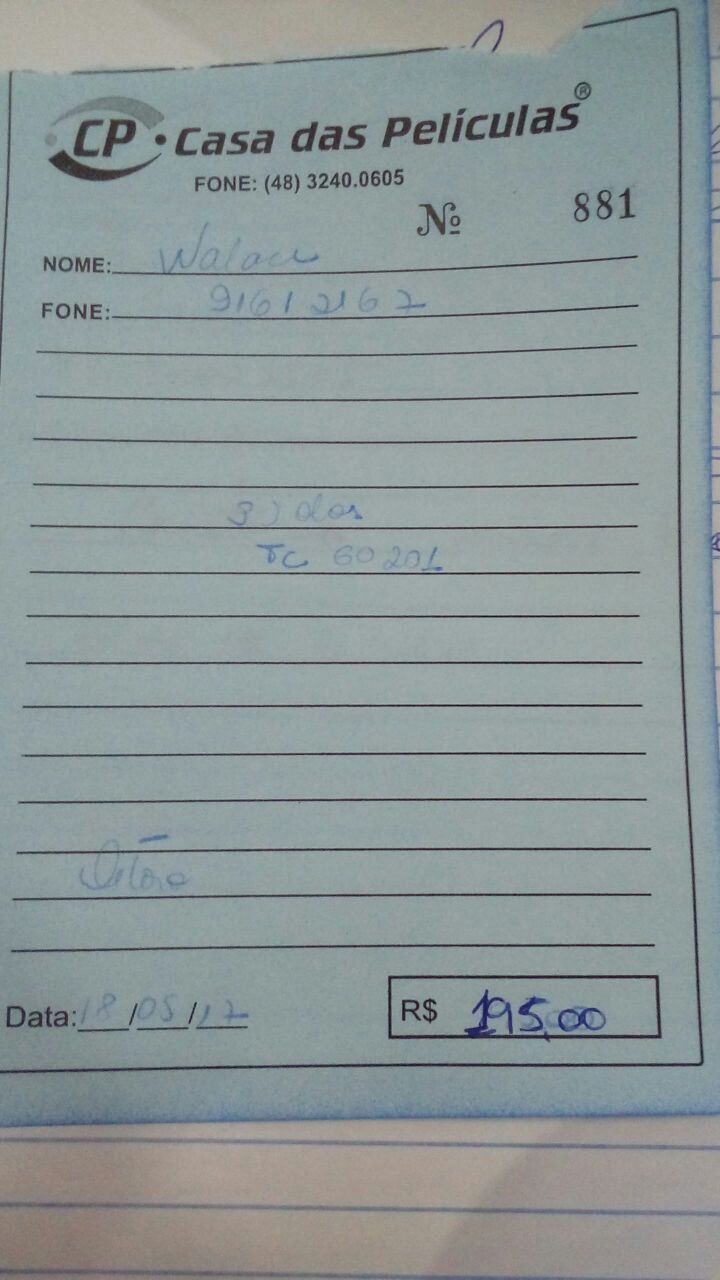 CP • Casa das Películas ®
FONE: (48) 3240.0605
Nº 881
NOME: Walace
FONE: 91612167
TC 60201
Data: 18/05/17
R$ 195,00